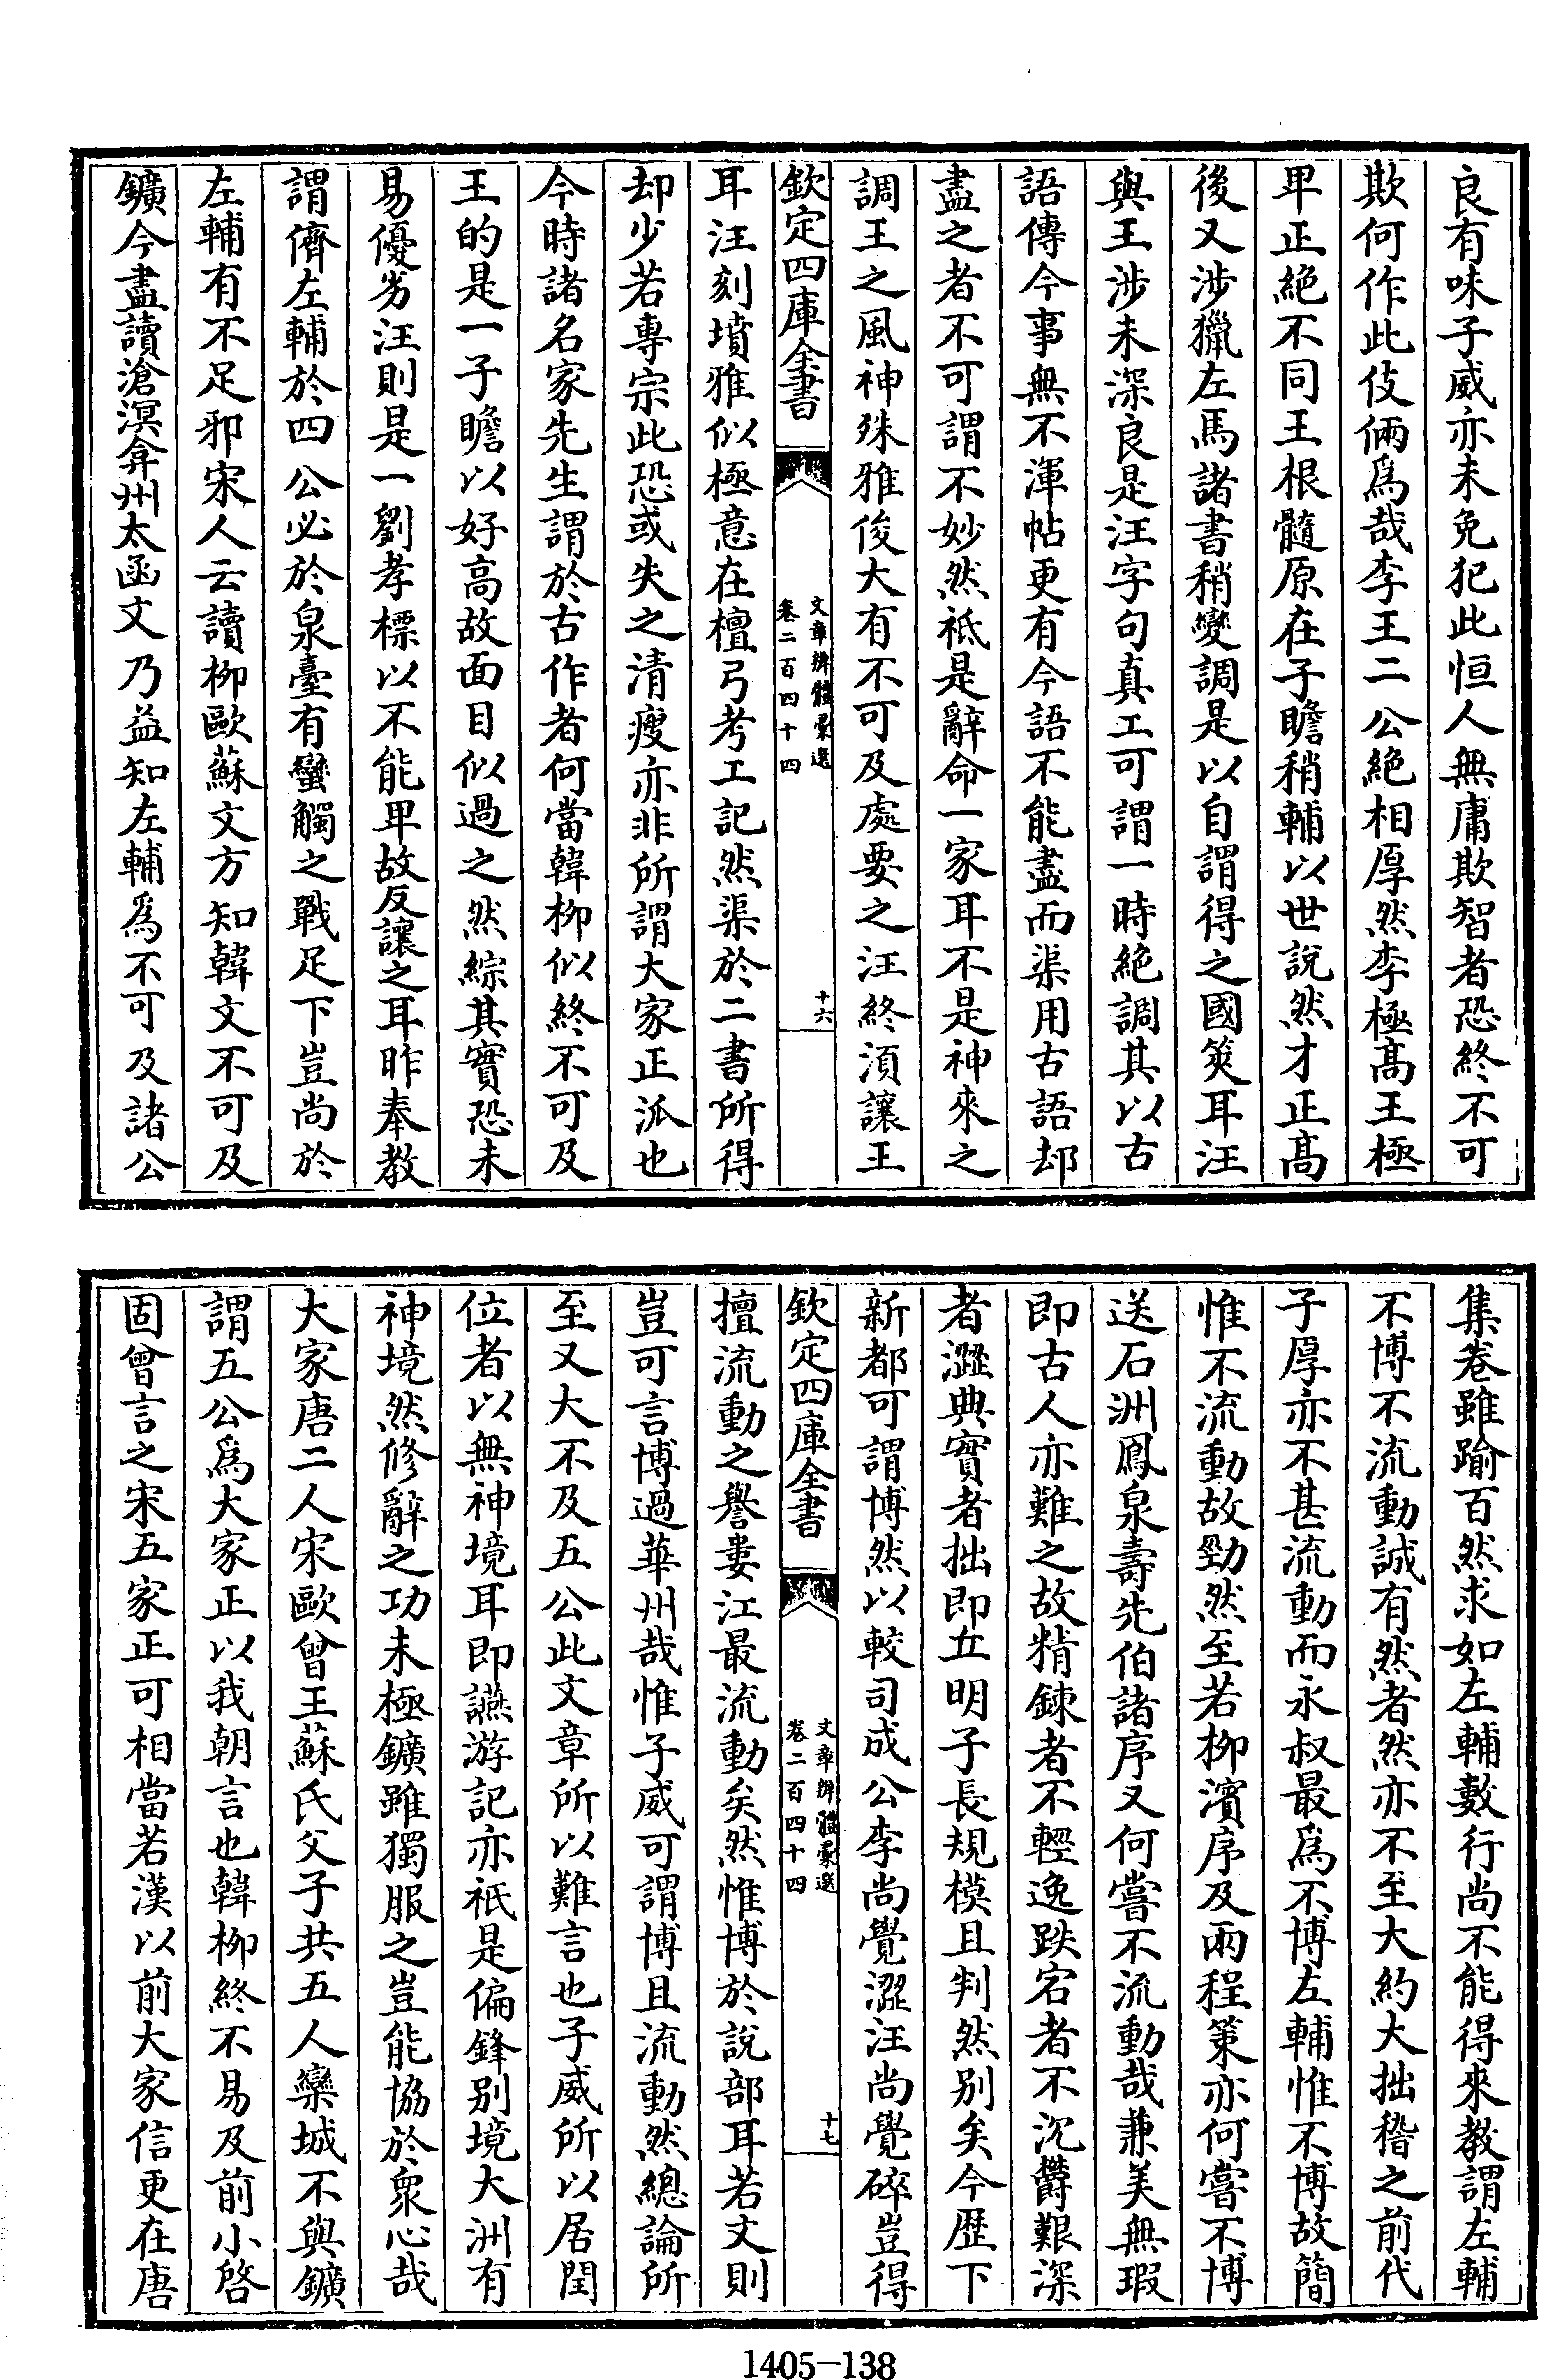 良有味子威亦未免犯此恒人無庸欺智者恐終不可
欺何作此伎倆爲哉李王二公絶相厚然李極髙王極
卑正絶不同王根髓原在子瞻稍輔以世説然才正髙
後又涉獵左馬諸書稍變調是以自謂得之國筴耳汪
與王涉未深良是汪字句真工可謂一時絶調其以古
語傳今事無不渾帖更有今語不能盡而渠用古語却
盡之者不可謂不妙然祗是辭命一家耳不是神來之
調王之風神殊雅俊大有不可及處要之汪終須讓王
欽定四庫全書
文章辨體彚選
卷二百四十四
十六
耳汪刻墳雅似極意在檀弓考工記然渠於二書所得
却少若專宗此恐或失之清瘦亦非所謂大家正派也
今時諸名家先生謂於古作者何當韓柳似終不可及
王的是一子瞻以好高故面目似過之然綜其實恐未
易優劣汪則是一劉孝標以不能卑故反讓之耳昨奉教
謂儕左輔於四公必於泉臺有蠻觸之戰足下豈尚於
左輔有不足邪宋人云讀柳歐蘇文方知韓文不可及
鑛今盡讀滄溟弇州太函文乃益知左輔爲不可及諸公
集卷雖踰百然求如左輔數行尚不能得來教謂左輔
不博不流動誠有然者然亦不至大約大拙稽之前代
子厚亦不甚流動而永叔最爲不博左輔惟不博故簡
惟不流動故勁然至若柳濱序及兩程策亦何嘗不博
送石洲鳳泉壽先伯諸序又何嘗不流動哉兼美無瑕
即古人亦難之故精鍊者不輕逸跌宕者不沉欝艱深
者澀典實者拙即丘明子長規模且判然别矣今歴下
新都可謂博然以較司成公李尚覺澀汪尚覺碎豈得
欽定四庫全書
文章辨體彚選
卷二百四十四
十七
擅流動之譽婁江最流動矣然惟博於説部耳若文則
豈可言博過華州哉惟子威可謂博且流動然總論所
至又大不及五公此文章所以難言也子威所以居閏
位者以無神境耳即讌游記亦祇是偏鋒别境大洲有
神境然修辭之功未極鑛雖獨服之豈能協於衆心哉
大家唐二人宋歐曾王蘇氏父子共五人欒城不與鑛
謂五公爲大家正以我朝言也韓柳終不易及前小啓
固曾言之宋五家正可相當若漢以前大家信更在唐
1405—138